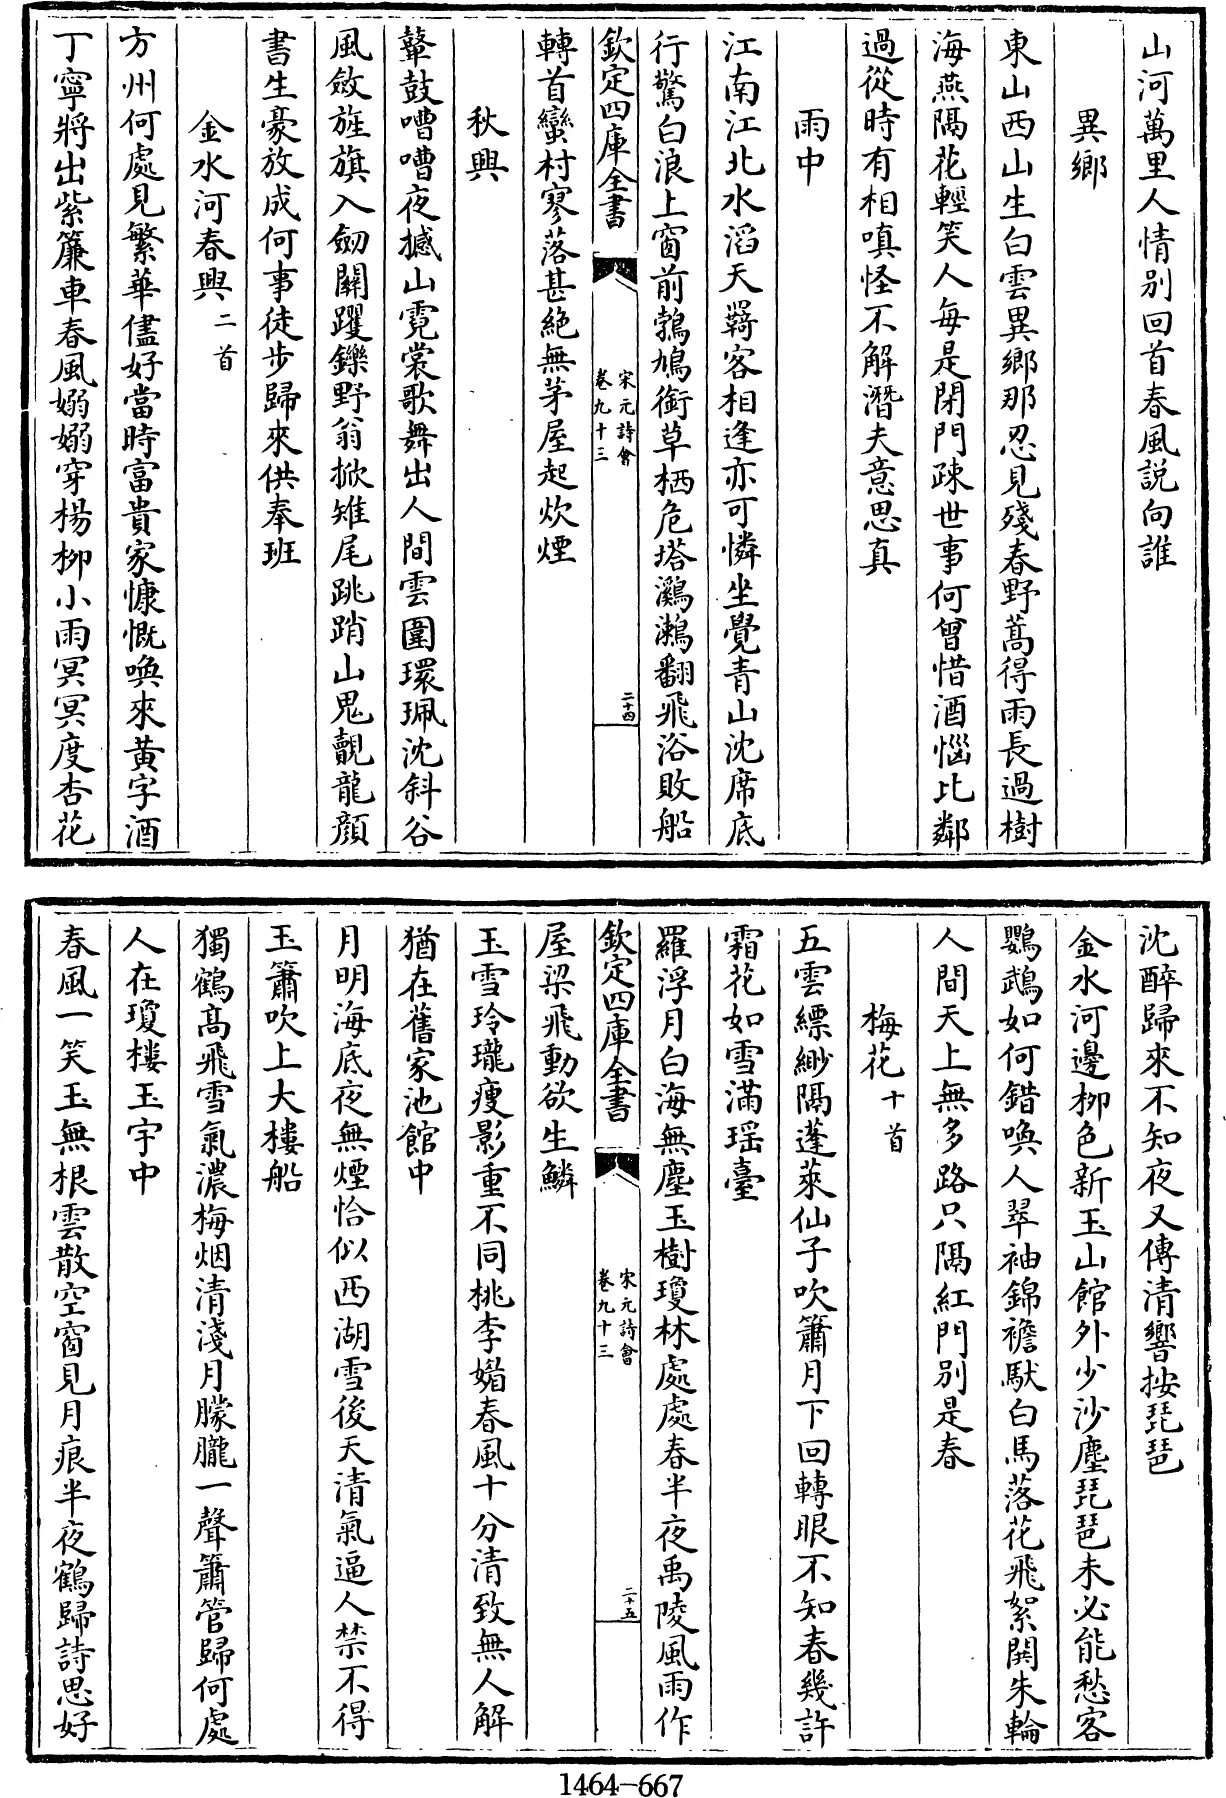 山河萬里人情别回首春風説向誰
異鄉
東山西山生白雲異鄉那忍見殘春野蒿得雨長過樹
海燕隔花輕笑人每是閉門疎世事何曾惜酒惱比鄰
過從時有相嗔怪不解潛夫意思真
雨中
江南江北水滔天羇客相逢亦可憐坐覺青山沈席底
行驚白浪上窗前鵓鳩銜草栖危塔鸂鶒翻飛浴敗船
欽定四庫全書
宋元詩會
卷九十三
二十四
轉首蠻村寥落甚絶無茅屋起炊煙
秋興
鼙鼓嘈嘈夜撼山霓裳歌舞出人間雲圍環珮沈斜谷
風斂旌旗入劒關躍鑠野翁掀雉尾跳踃山鬼覿龍顔
書生豪放成何事徒步歸來供奉班
金水河春興二首
方州何處見繁華儘好當時富貴家慷慨喚來黄字酒
丁寧將出紫簾車春風嫋嫋穿楊柳小雨冥冥度杏花
沈醉歸來不知夜又傳清響按琵琶
金水河邊柳色新玉山館外少沙塵琵琶未必能愁客
鸚鵡如何錯喚人翠袖錦襜馱白馬落花飛絮閧朱輪
人間天上無多路只隔紅門别是春
梅花十首
五雲縹緲隔蓬萊仙子吹簫月下回轉眼不知春幾許
霜花如雪滿瑶臺
羅浮月白海無塵玉樹瓊林處處春半夜禹陵風雨作
欽定四庫全書
宋元詩會
卷九十三
二十五
屋梁飛動欲生鱗
玉雪玲瓏瘦影重不同桃李媚春風十分清致無人解
猶在舊家池館中
月明海底夜無煙恰似西湖雪後天清氣逼人禁不得
玉簫吹上大樓船
獨鶴高飛雪氣濃梅烟清淺月朦朧一聲簫管歸何處
人在瓊樓玉宇中
春風一笑玉無根雲散空窗見月痕半夜鶴歸詩思好
1464-667